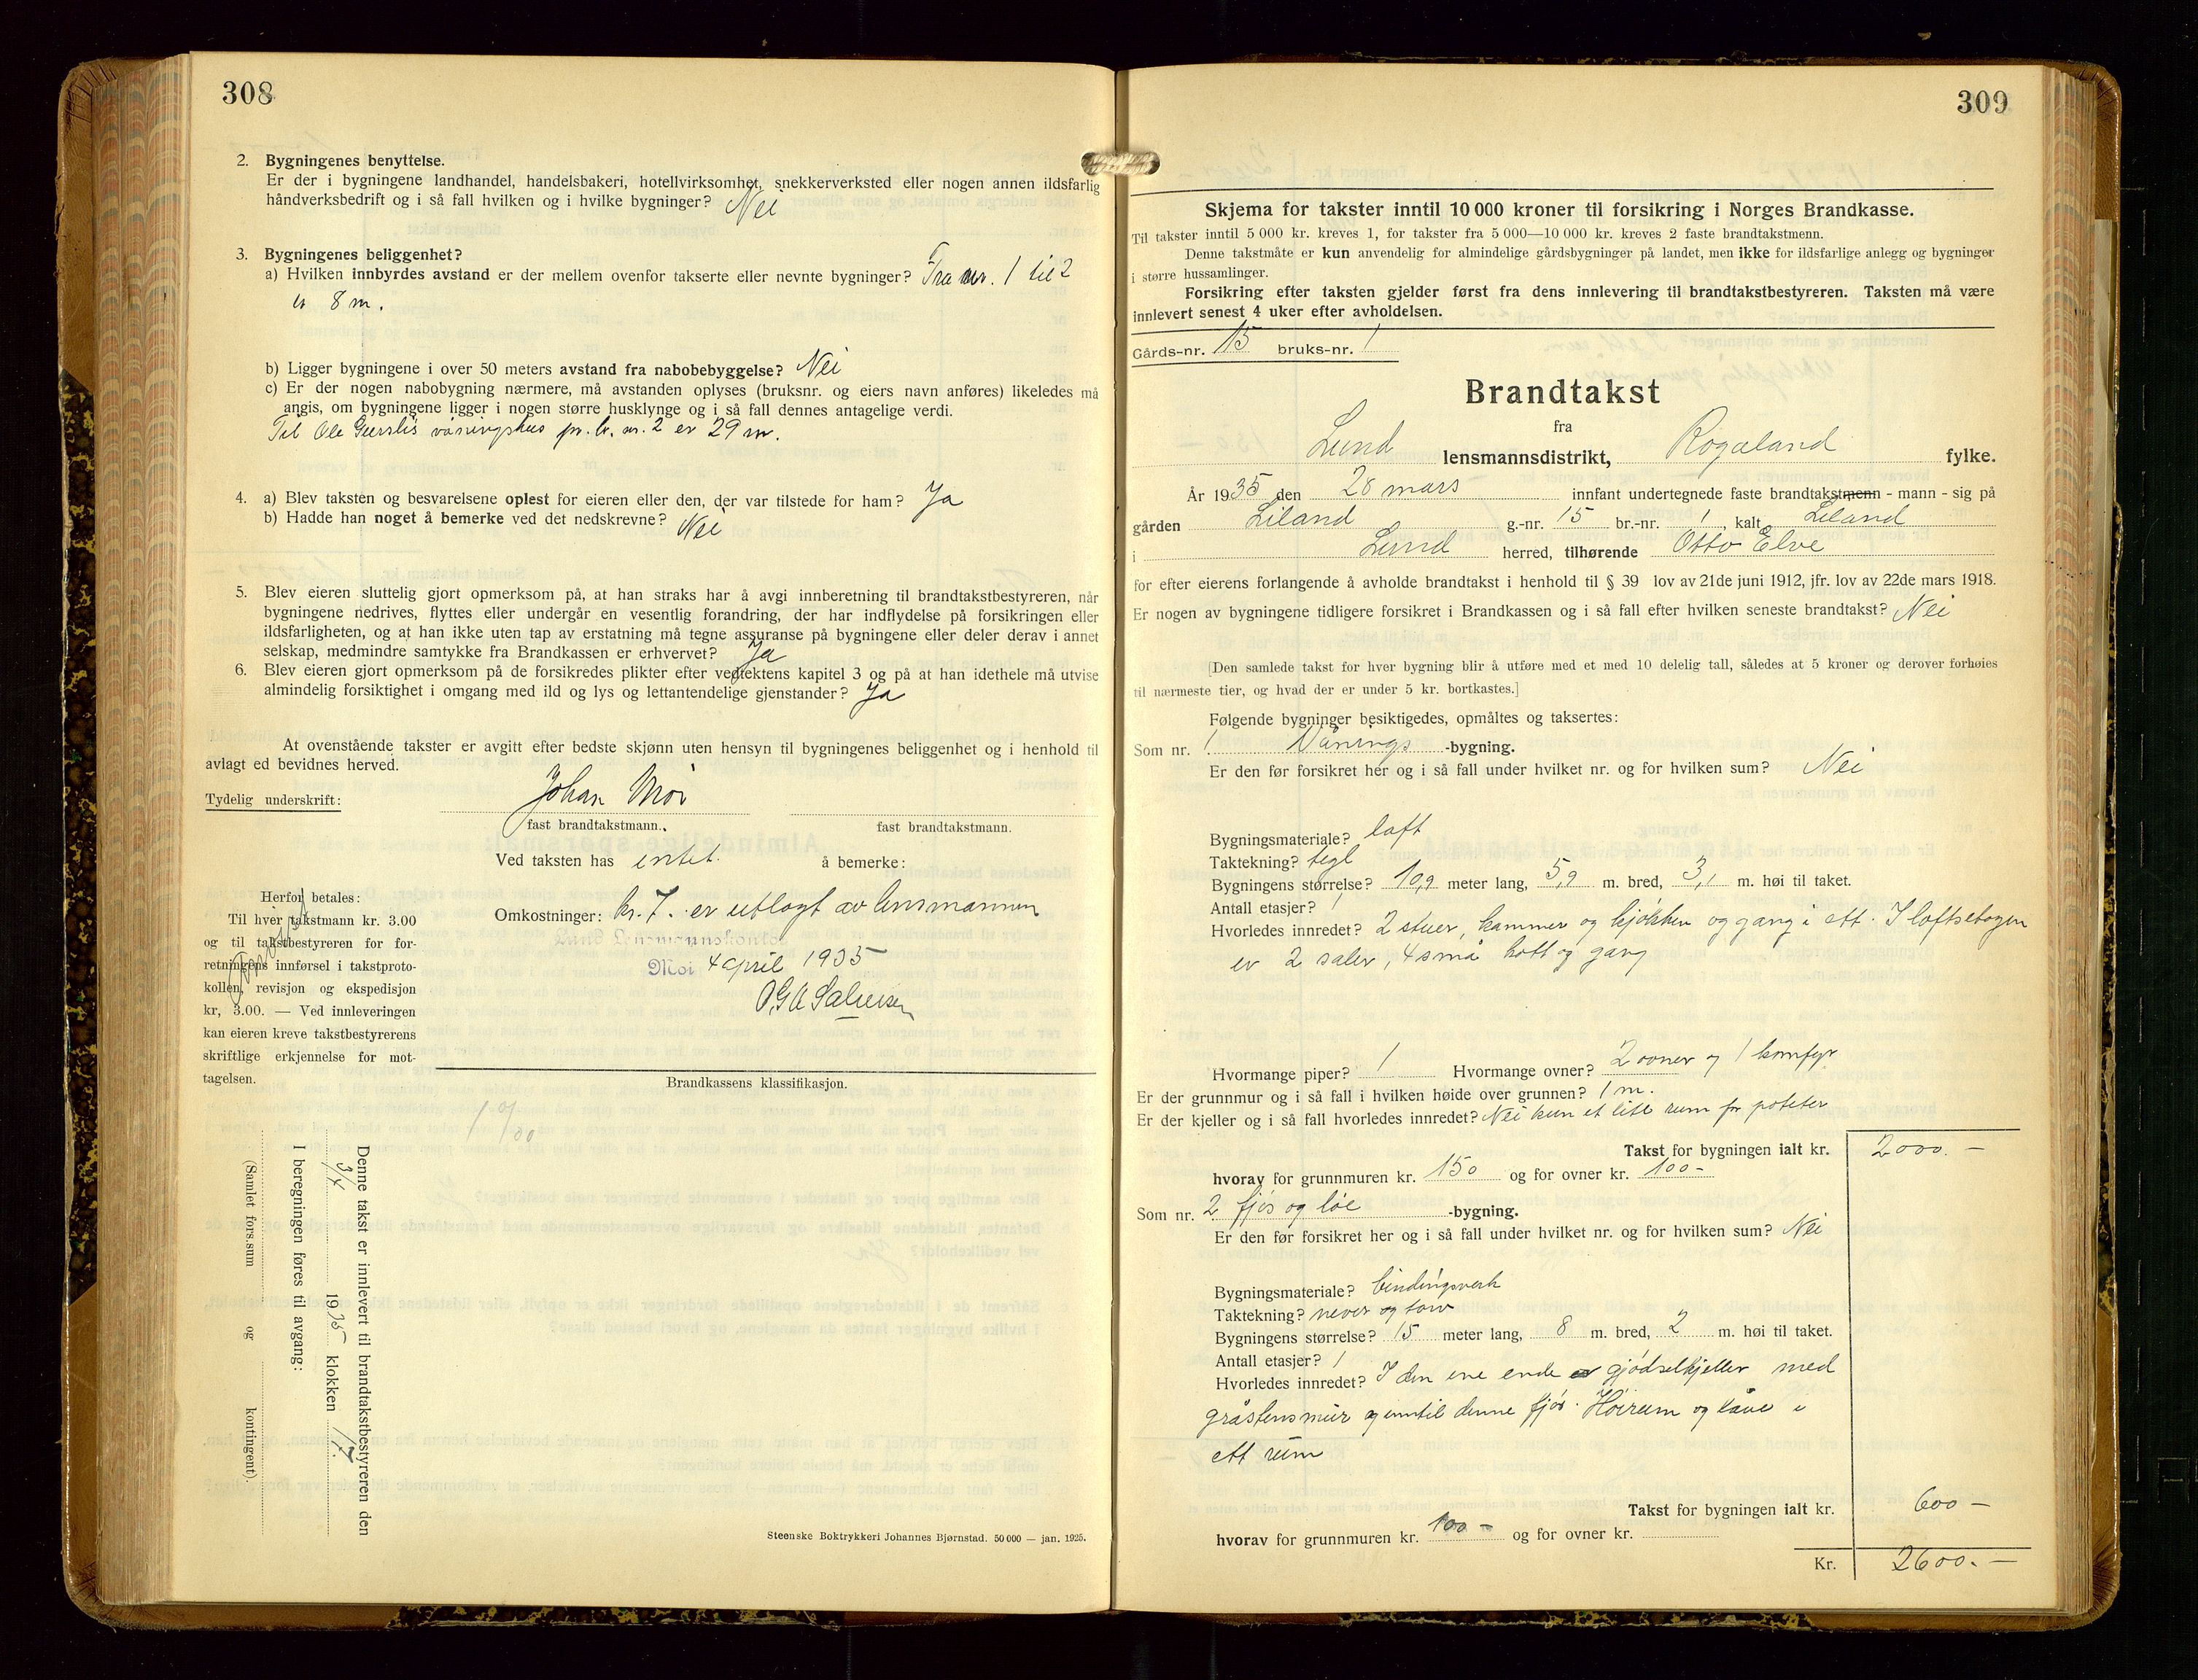 308
2. Bygningenes benyttelse.
Er der i bygningene landhandel, handelsbakeri, hotellvirksomhet, snekkerverksted eller nogen annen ildsfarlig
håndverksbedrift og i så fall hvilken og i hvilke bygninger? Nei
3. Bygningenes beliggenhet?
a) Hvilken innbyrdes avstand er der mellem ovenfor takserte eller nevnte bygninger? Fra nr. 1 til 2
er 8 m.
b) Ligger bygningene i over 50 meters avstand fra nabobebyggelse? Nei
c) Er der nogen nabobygning nærmere, må avstanden oplyses (bruksnr. og eiers navn anføres) likeledes må
angis, om bygningene ligger i nogen større husklynge og i så fall dennes antagelige verdi.
Til Ole våningshus pr. br. nr. 2 er 29 m.
4. a) Blev taksten og besvarelsene oplest for eieren eller den, der var tilstede for ham? Ja
b) Hadde han noget å bemerke ved det nedskrevne? Nei
5. Blev eieren sluttelig gjort opmerksom på, at han straks har å avgi innberetning til brandtakstbestyreren, når
bygningene nedrives, flyttes eller undergår en vesentlig forandring, der har indflydelse på forsikringen eller
ildsfarligheten, og at han ikke uten tap av erstatning må tegne assuranse på bygningene eller deler derav i annet
selskap, medmindre samtykke fra Brandkassen er erhvervet? Ja
6. Blev eieren gjort opmerksom på de forsikredes plikter efter vedtektens kapitel 3 og på at han idethele må utvise
almindelig forsiktighet i omgang med ild og lys og lettantendelige gjenstander? Ja
At ovenstående takster er avgitt efter bedste skjønn uten hensyn til bygningenes beliggenhet og i henhold til
avlagt ed bevidnes herved.
Tydelig underskrift: Johan Moi
fast brandtakstmann. fast brandtakstmann.
Ved taksten has intet å bemerke:
Omkostninger: kr. 7. er utlagt av lensmannen
Lund Lensmannskontor
Moi 4 april 1935
Herfor betales:
Til hver takstmann kr. 3.00
og til takstbestyreren for for-
retningens innførsel i takstproto-
kollen, revisjon og ekspedisjon
kr, 3.00. — Ved innleveringen
kan eieren kreve takstbestyrerens
skriftlige erkjennelse for mot-
tagelsen.
Brandkassens klassifikasjon.
Denne takst er innlevert til brandtakstbestyreren den
3/4 1935 klokken 17
I beregningen føres til avgang:
(Samlet fors.sum og kontingent).
Steenske Boktrykkeri Johannes Bjørnstad. 50 000 — jan. 1925.
309
Skjema for takster inntil 10 000 kroner til forsikring i Norges Brandkasse.
Til takster inntil 5 000 kr. kreves 1, for takster fra 5 000—10 000 kr. kreves 2 faste brandtakstmenn.
Denne takstmåte er kun anvendelig for almindelige gårdsbygninger på landet, men ikke for ildsfarlige anlegg og bygninger
i større hussamlinger.
Forsikring efter taksten gjelder først fra dens innlevering til brandtakstbestyreren. Taksten må være
innlevert senest 4 uker efter avholdelsen.
Gårds-nr. 15 bruks-nr. 1
Brandtakst
fra
Lund lensmannsdistrikt, Rogaland fylke.
År 1935 den 28 mars innfant undertegnede faste brandtakstmenn - mann - sig på
gården Liland g.-nr. 15 br.-nr. 1, kalt Liland
i Lund herred, tilhørende Otto Elve
for efter eierens forlangende å avholde brandtakst i henhold til § 39 lov av 21de juni 1912, jfr. lov av 22de mars 1918.
Er nogen av bygningene tidligere forsikret i Brandkassen og i så fall efter hvilken seneste brandtakst? Nei
[Den samlede takst for hver bygning blir å utføre med et med 10 delelig tall, således at 5 kroner og derover forhøies
til nærmeste tier, og hvad der er under 5 kr. bortkastes.]
Følgende bygninger besiktigedes, opmåltes og taksertes:
Som nr. 1 Vånings -bygning.
Er den før forsikret her og i så fall under hvilket nr. og for hvilken sum? Nei
Bygningsmateriale? laft
Taktekning? tegl
Bygningens størrelse? 10,9 meter lang, 5,9 m. bred, 3,1 m. høi til taket.
Antall etasjer? 1
Hvorledes innredet? 2 stuer, kammer og kjøkken og gang i ett. I loftsetagen
er 2 saler, 4 små kott og gang
Hvormange piper? 1 Hvormange ovner? 2 ovner og 1 komfyr
Er der grunnmur og i så fall i hvilken høide over grunnen? 1 m.
Er der kjeller og i så fall hvorledes innredet? Nei kun et lite rum for poteter
Takst for bygningen ialt kr. 2000. —
hvorav for grunnmuren kr. 150 og for ovner kr. 100 -
Som nr. 2 fjøs og løe -bygning.
Er den før forsikret her og i så fall under hvilket nr. og for hvilken sum? Nei
Bygningsmateriale? bindingsverk
Taktekning? never og torv
Bygningens størrelse? 15 meter lang, 8 m. bred, 2 m. høi til taket.
Antall etasjer? 1
Hvorledes innredet? I den ene ende er gjødselkjeller med
gråstensmur og inntil denne fjøs. Høirum og låve i
ett rum
Takst for bygningen ialt kr. 600 —
hvorav for grunnmuren kr. 100 - og for ovner kr.
Kr. 2600. —